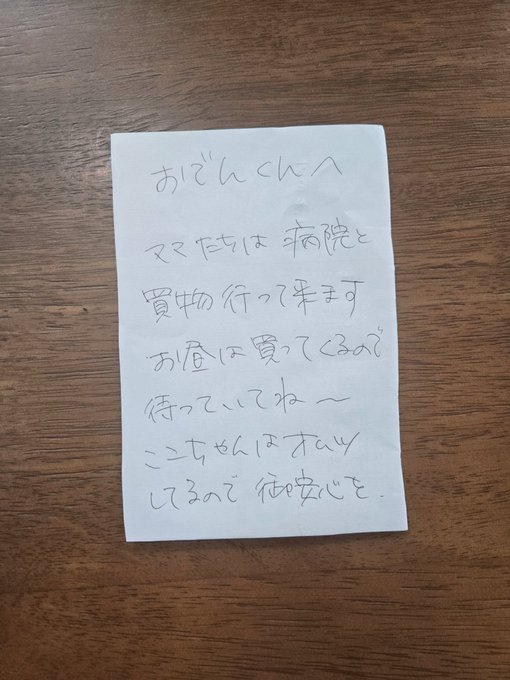 おでんくんへ
ママたちは病院と
買物行って来ます
お昼は買ってくるので
待っていてね〜
ここちゃんはオムツ
してるので御安心を.